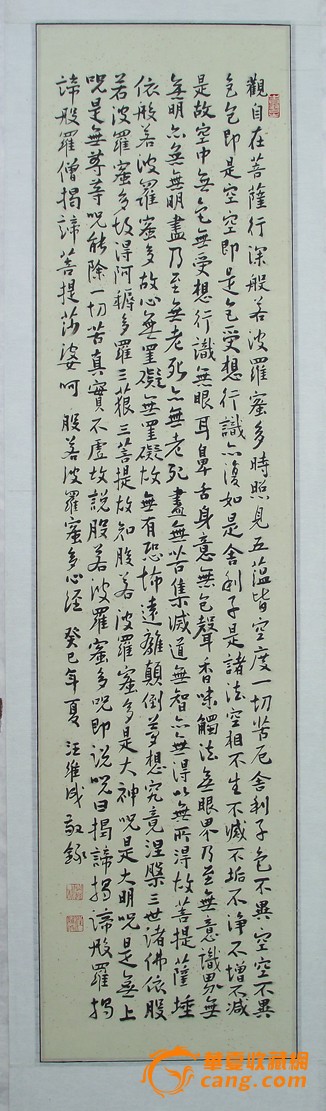 觀自在菩薩行深般若波羅蜜多時照見五蘊皆空度一切苦厄舍利子色不異空空不異
色色即是空空即是色受想行識亦復如是舍利子是諸法空相不生不滅不垢不淨不增不減
是故空中無色無受想行識無眼耳鼻舌身意無色聲香味觸法無眼界乃至無意識界無
無明亦無無明盡乃至無老死亦無老死盡無苦集滅道無智亦無得以無所得故菩提薩埵
依般若波羅蜜多故心無罣礙無罣礙故無有恐怖遠離顛倒夢想究竟涅槃三世諸佛依般
若波羅蜜多故得阿耨多羅三藐三菩提故知般若波羅蜜多是大神咒是大明咒是無上
咒是無等等咒能除一切苦真實不虛故說般若波羅蜜多咒即說咒曰揭諦揭諦般羅揭
諦般羅僧揭諦菩提莎婆呵 般若波羅蜜多心經 癸巳年夏 汪維成敬錄
華夏收藏網
cang.com